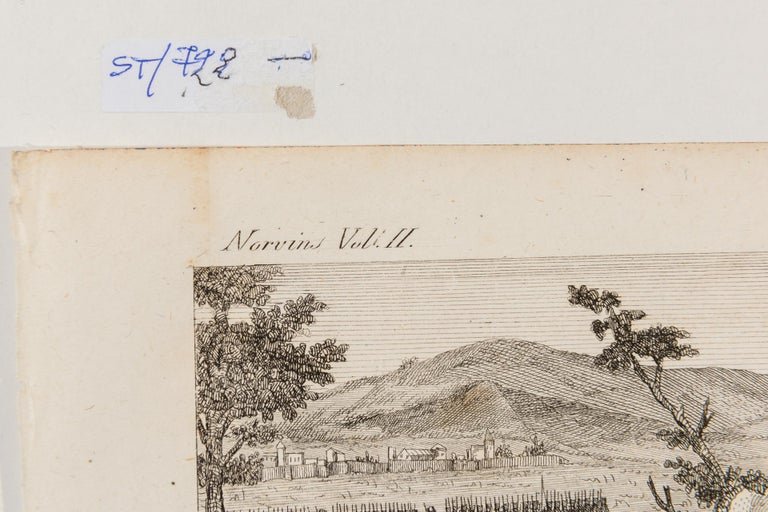 ST/722 —
Norvins Vol. II.